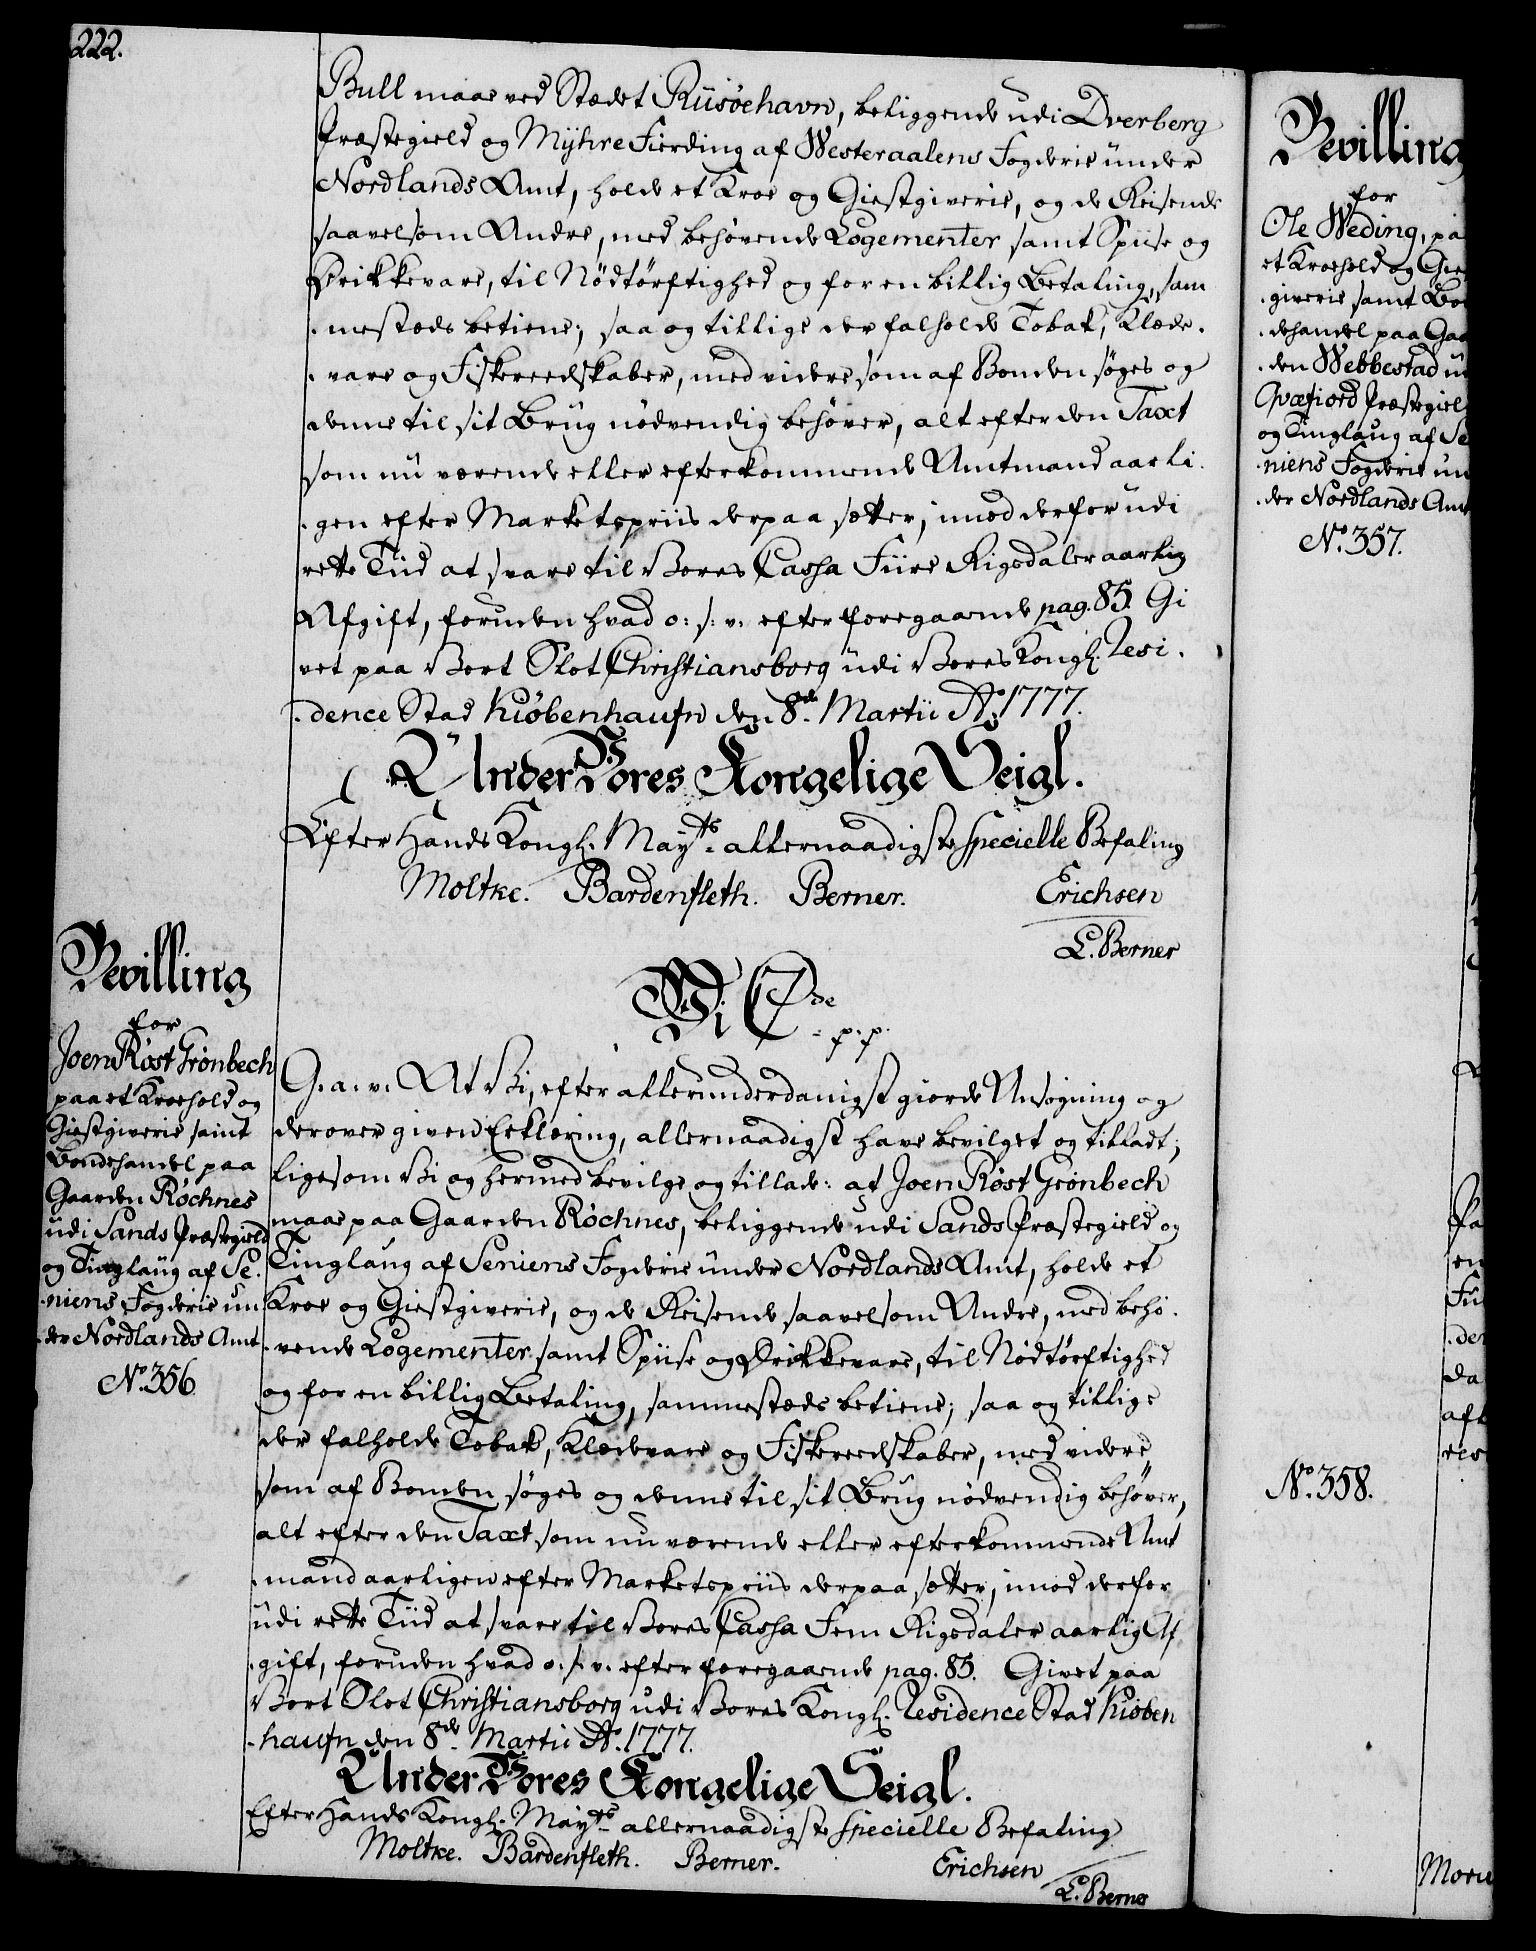 222.
Bull maae ved Stædet Riisöehavn, beliggende udi Dverberg
Præstegield og Mÿhre Fierding af Westeraalens Fogderie under
Nordlands Amt, holde et Kroe og Giestgiverie, og de Reisende
saavelsom Andre, med behøvende Logementer samt Spiise og
Drikkevare, til Nödtörftighed og for en billig Betaling, sam
mestæds betiene; saa og tillige der falholde Tobak, Klæde-
vare og Fiskereedskaber, med videre som af Bonden söges og
denne til sit Brug nödvendig behöver, alt efter den Taxt
som nu værende eller efterkommende Amtmand aarli-
gen efter Marketspriis derpaa sætter, imod derfor udi
rette Tiid at svare til Vores Cassa Fiire Rigsdaler aarlig
Afgift, foruden hvad o: s: v: efter foregaaende pag. 85. Gi
vet paa Vort Slot Christiansborg udi Vores Kongl. Resi-
dence Stad Kiöbenhaufn den 8de Martii Ao. 1777.
Under Vores Kongelige Seigl.
Efter Hands Kongl. Mayts allernaadigste specielle Befaling
Moltke. Bardenfleth. Berner. Erichsen
L. Berner
Bevilling
for
Joen Röst Grönbech
paa et Kroehold og
Giestgiverie samt
Bondehandel paa
Gaarden Röchnes
udi Sands Præstegield
og Tinglaug af Se-
niens Fogderie un-
der Nordlands Amt.
No. 356.
Wi C 7de p. p.
G. a. v. At Vi, efter allerunderdanigst giorde Ansögning og
derover given Erklæring, allernaadigst have bevilget og tilladt;
ligesom Vi og hermed bevilge og tillade: at Joen Röst Grönbech
maae paa Gaarden Röchnes, beliggende udi Sands Præstegield og
Tinglaug af Seniens Fogderie under Nordlands Amt, holde et
Kroe og Giestgiverie, og de Reisende saavelsom Andre, med behö-
vende Logementer samt Spiise og Drikkevare, til Nödtörftighed
og for en billig Betaling, sammestæds betiene; saa og tillige
der falholde Tobak, Klædevare og Fiskereedskaber, med videre,
som af Bonden söges og denne til sit Brug nödvendig behöver,
alt efter den Taxt som nu værende eller efterkommende Amt
mand aarligen efter Marketspriis derpaa sætter, imod derfor
udi rette Tiid at svare til Vores Cassa Fem Rigsdaler aarlig Af
gift, foruden hvad o. s. v. efter foregaaende pag. 85. Givet paa
Vort Slot Christiansborg udi Vores Kongl. Residence Stad Kiöben
haufn den 8de Martii Ao. 1777.
Under Vores Kongelige Seigl.
Efter Hands Kongl. Mayts allernaadigste specielle Befaling
Moltke. Bardenfleth. Berner. Erichsen
L. Berner
Bevilling
for
Ole Weding, pa
et Kroehold og Gie
giverie samt Bon
dehandel paa Gaa
den Webbestad u
Qvæfiord Præstegiel
og Tinglaug af Se
niens Fogderie un
der Nordlands Amt
No. 357.
No. 358.